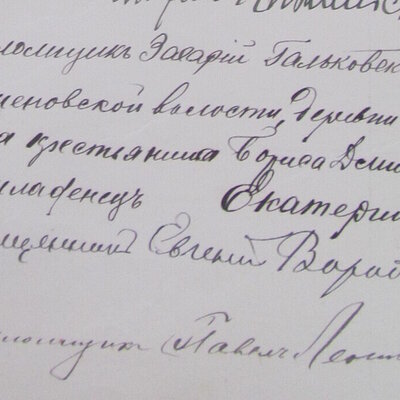 саломщикъ Захарій Гальковск
меновской волости, деревни
ка крестьянина Бориса Дем
младенецъ Екатери
щенникъ Евгеній Вороб
саломщикъ Павелъ Леон